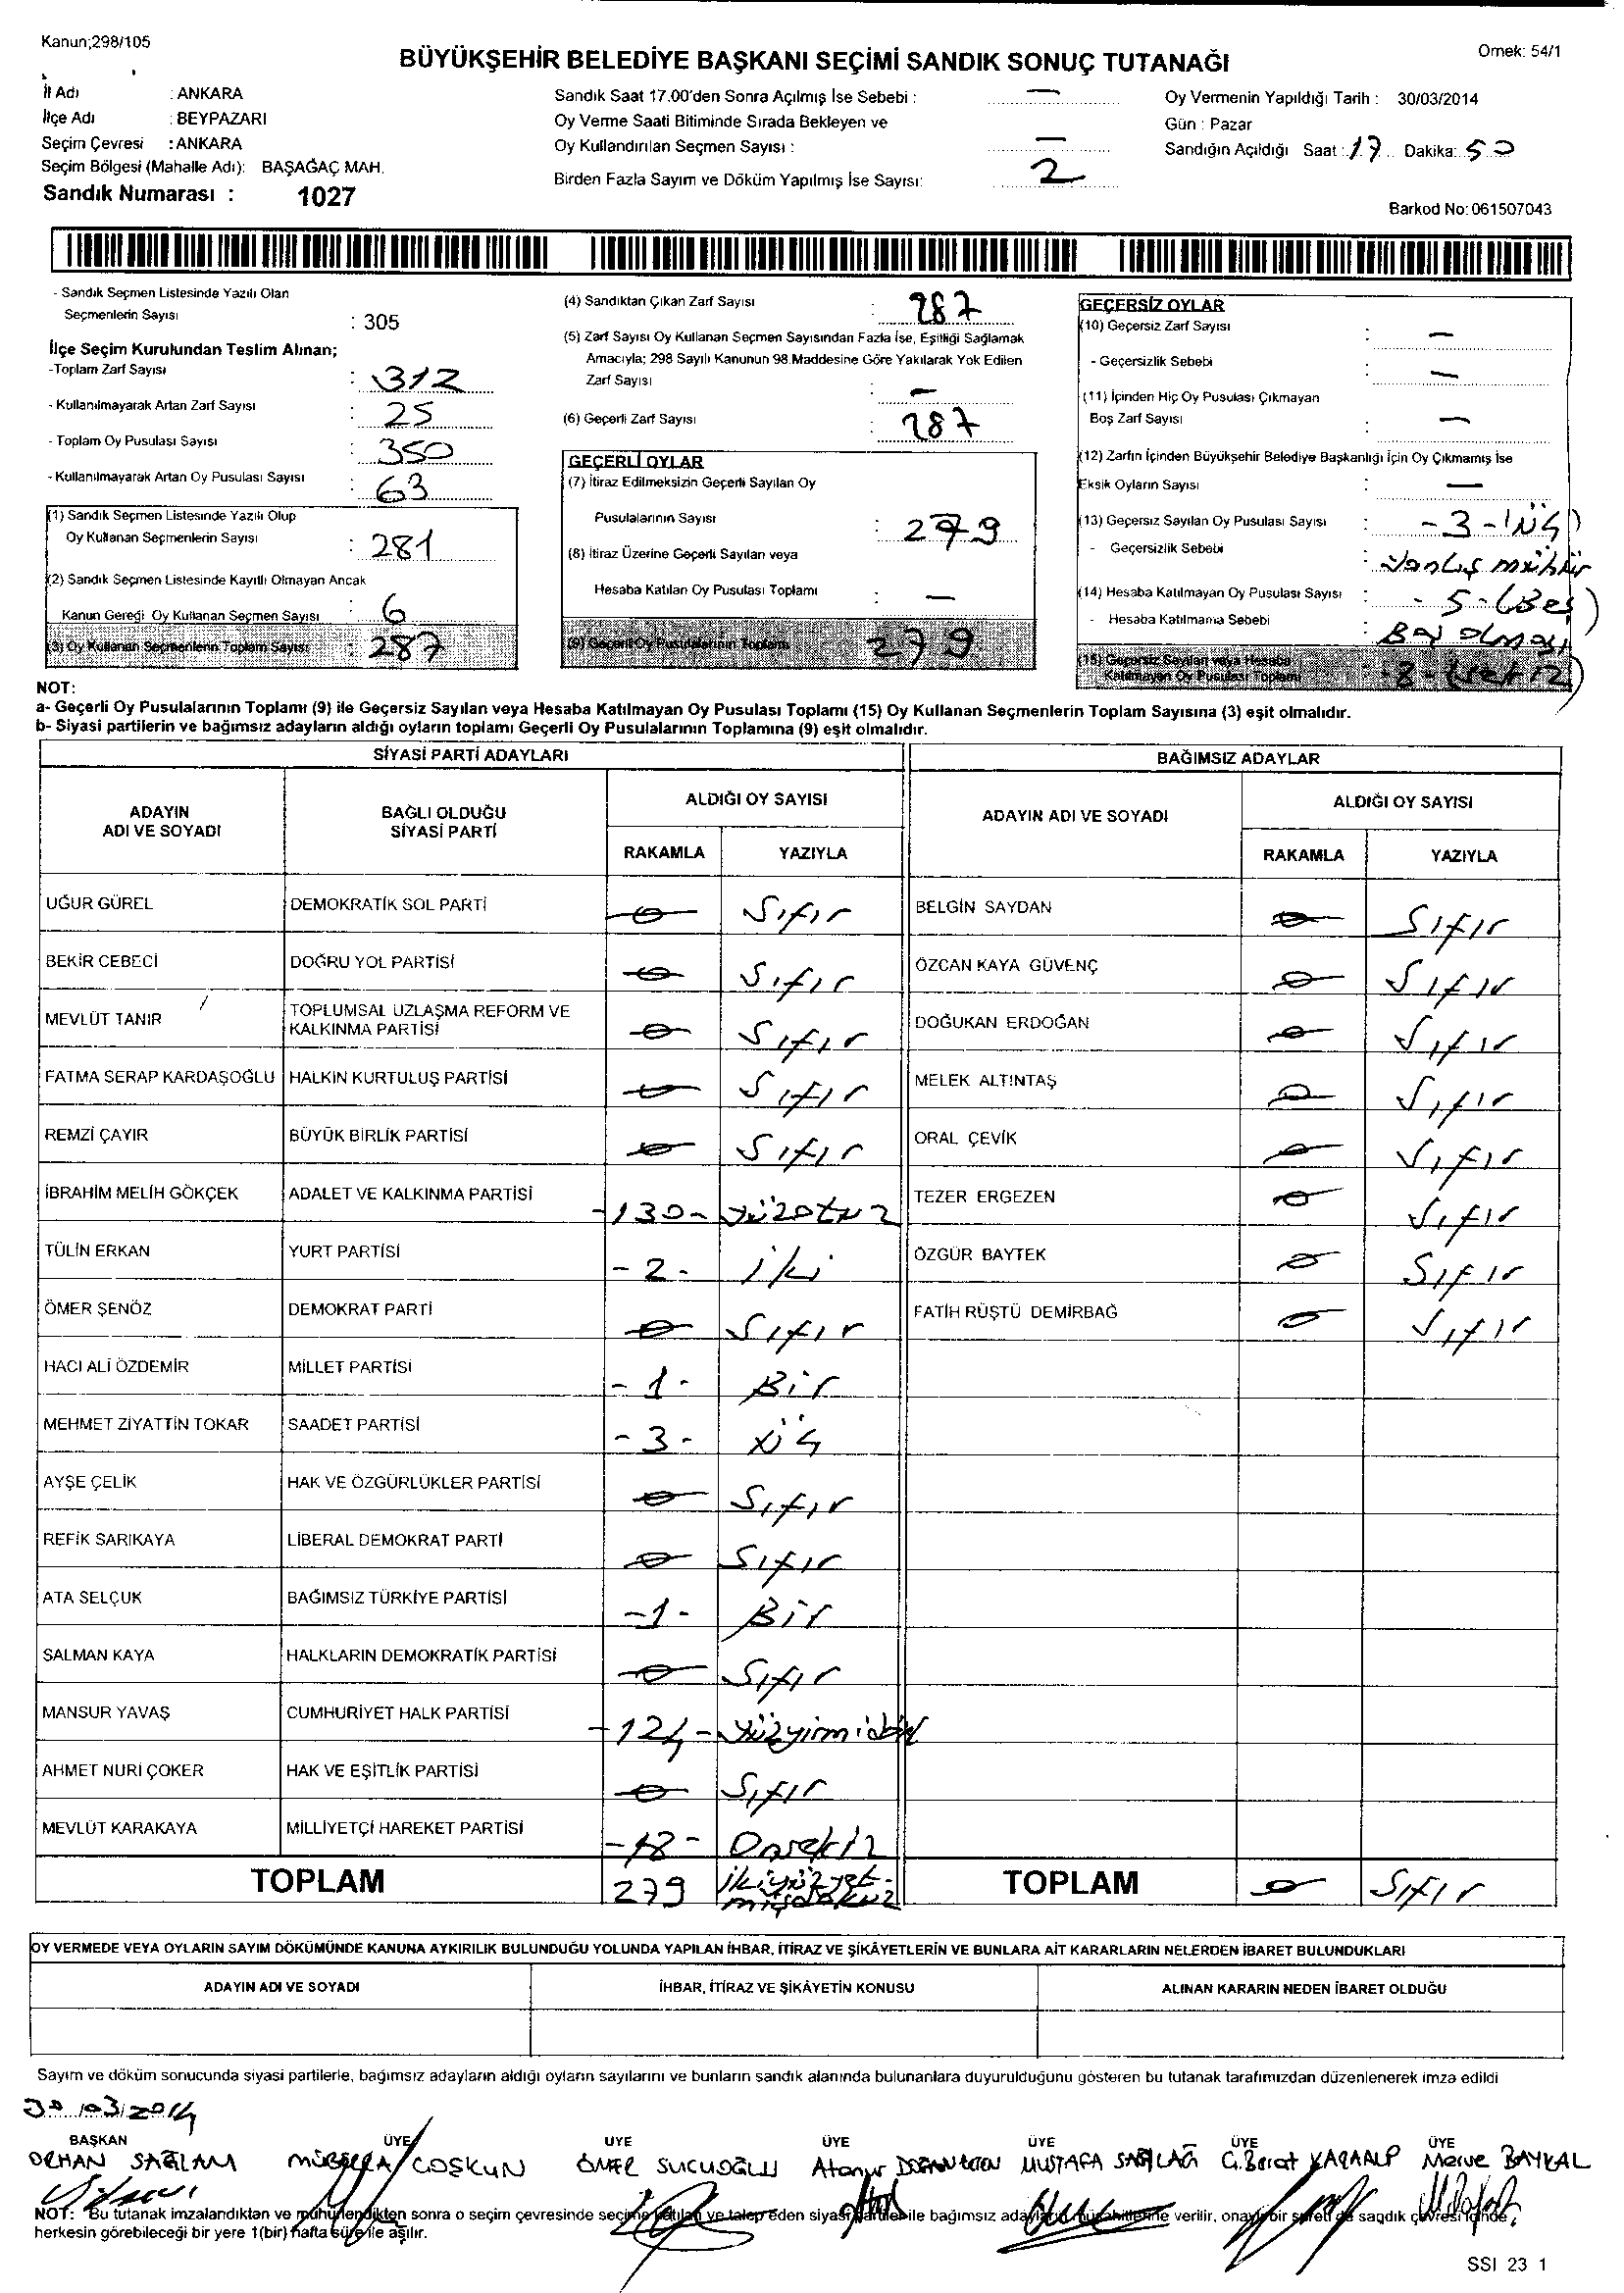 Kanun;298/105
Ornek: 54/1
BÜYÜKŞEHİR BELEDİYE BAŞKANI SEÇİMİ SANDIK SONUÇ TUTANAĞI
İl Adı : ANKARA
İlçe Adı : BEYPAZARI
Seçim Çevresi : ANKARA
Seçim Bölgesi (Mahalle Adı): BAŞAĞAÇ MAH.
Sandık Numarası : 1027
Sandık Saat 17.00'den Sonra Açılmış İse Sebebi : —
Oy Verme Saati Bitiminde Sırada Bekleyen ve
Oy Kullandırılan Seçmen Sayısı : —
Birden Fazla Sayım ve Döküm Yapılmış İse Sayısı: 2
Oy Vermenin Yapıldığı Tarih : 30/03/2014
Gün : Pazar
Sandığın Açıldığı Saat : 17 Dakika: 50
Barkod No: 061507043
- Sandık Seçmen Listesinde Yazılı Olan
Seçmenlerin Sayısı : 305
İlçe Seçim Kurulundan Teslim Alınan;
-Toplam Zarf Sayısı : 312
- Kullanılmayarak Artan Zarf Sayısı : 25
- Toplam Oy Pusulası Sayısı : 350
- Kullanılmayarak Artan Oy Pusulası Sayısı : 63
(1) Sandık Seçmen Listesinde Yazılı Olup
Oy Kullanan Seçmenlerin Sayısı : 281
(2) Sandık Seçmen Listesinde Kayıtlı Olmayan Ancak
Kanun Gereği Oy Kullanan Seçmen Sayısı : 6
(3) Oy Kullanan Seçmenlerin Toplam Sayısı : 287
(4) Sandıktan Çıkan Zarf Sayısı : 287
(5) Zarf Sayısı Oy Kullanan Seçmen Sayısından Fazla İse, Eşitliği Sağlamak
Amacıyla; 298 Sayılı Kanunun 98.Maddesine Göre Yakılarak Yok Edilen
Zarf Sayısı : —
(6) Geçerli Zarf Sayısı : 287
GEÇERLİ OYLAR
(7) İtiraz Edilmeksizin Geçerli Sayılan Oy
Pusulalarının Sayısı : 279
(8) İtiraz Üzerine Geçerli Sayılan veya
Hesaba Katılan Oy Pusulası Toplamı : —
(9) Geçerli Oy Pusulalarının Toplamı 279
GEÇERSİZ OYLAR
(10) Geçersiz Zarf Sayısı : —
- Geçersizlik Sebebi : —
(11) İçinden Hiç Oy Pusulası Çıkmayan
Boş Zarf Sayısı : —
(12) Zarfın İçinden Büyükşehir Belediye Başkanlığı İçin Oy Çıkmamış İse
Eksik Oyların Sayısı : —
(13) Geçersiz Sayılan Oy Pusulası Sayısı : - 3 - (ÜÇ)
- Geçersizlik Sebebi : Yanlış mühür
(14) Hesaba Katılmayan Oy Pusulası Sayısı : - 5 - (Beş)
- Hesaba Katılmama Sebebi : Boş olması
(15) Geçersiz Sayılan veya Hesaba
Katılmayan Oy Pusulası Toplamı -8- (sekiz)
NOT:
a- Geçerli Oy Pusulalarının Toplamı (9) ile Geçersiz Sayılan veya Hesaba Katılmayan Oy Pusulası Toplamı (15) Oy Kullanan Seçmenlerin Toplam Sayısına (3) eşit olmalıdır.
b- Siyasi partilerin ve bağımsız adayların aldığı oyların toplamı Geçerli Oy Pusulalarının Toplamına (9) eşit olmalıdır.
SİYASİ PARTİ ADAYLARI
ADAYIN ADI VE SOYADI
BAĞLI OLDUĞU SİYASİ PARTİ
ALDIĞI OY SAYISI
RAKAMLA YAZIYLA
UĞUR GÜREL DEMOKRATİK SOL PARTİ 0 Sıfır
BEKİR CEBECİ DOĞRU YOL PARTİSİ 0 Sıfır
MEVLÜT TANIR TOPLUMSAL UZLAŞMA REFORM VE KALKINMA PARTİSİ 0 Sıfır
FATMA SERAP KARDAŞOĞLU HALKIN KURTULUŞ PARTİSİ 0 Sıfır
REMZİ ÇAYIR BÜYÜK BİRLİK PARTİSİ 0 Sıfır
İBRAHİM MELİH GÖKÇEK ADALET VE KALKINMA PARTİSİ -130- Yüzotuz
TÜLİN ERKAN YURT PARTİSİ - 2 - iki
ÖMER ŞENÖZ DEMOKRAT PARTİ 0 Sıfır
HACI ALİ ÖZDEMİR MİLLET PARTİSİ - 1 - Bir
MEHMET ZİYATTİN TOKAR SAADET PARTİSİ - 3 - üç
AYŞE ÇELİK HAK VE ÖZGÜRLÜKLER PARTİSİ 0 Sıfır
REFİK SARIKAYA LİBERAL DEMOKRAT PARTİ 0 Sıfır
ATA SELÇUK BAĞIMSIZ TÜRKİYE PARTİSİ -1- Bir
SALMAN KAYA HALKLARIN DEMOKRATİK PARTİSİ 0 Sıfır
MANSUR YAVAŞ CUMHURİYET HALK PARTİSİ -124- Yüzyirmidört
AHMET NURİ ÇOKER HAK VE EŞİTLİK PARTİSİ 0 Sıfır
MEVLÜT KARAKAYA MİLLİYETÇİ HAREKET PARTİSİ -18- Onsekiz
TOPLAM 279 ikiyüzyet-
mişdokuz
BAĞIMSIZ ADAYLAR
ADAYIN ADI VE SOYADI
ALDIĞI OY SAYISI
RAKAMLA YAZIYLA
BELGİN SAYDAN 0 Sıfır
ÖZCAN KAYA GÜVENÇ 0 Sıfır
DOĞUKAN ERDOĞAN 0 Sıfır
MELEK ALTINTAŞ 0 Sıfır
ORAL ÇEVİK 0 Sıfır
TEZER ERGEZEN 0 Sıfır
ÖZGÜR BAYTEK 0 Sıfır
FATİH RÜŞTÜ DEMİRBAĞ 0 Sıfır
TOPLAM 0 Sıfır
OY VERMEDE VEYA OYLARIN SAYIM DÖKÜMÜNDE KANUNA AYKIRILIK BULUNDUĞU YOLUNDA YAPILAN İHBAR, İTİRAZ VE ŞİKÂYETLERİN VE BUNLARA AİT KARARLARIN NELERDEN İBARET BULUNDUKLARI
ADAYIN ADI VE SOYADI İHBAR, İTİRAZ VE ŞİKÂYETİN KONUSU ALINAN KARARIN NEDEN İBARET OLDUĞU
Sayım ve döküm sonucunda siyasi partilerle, bağımsız adayların aldığı oyların sayılarını ve bunların sandık alanında bulunanlara duyurulduğunu gösteren bu tutanak tarafımızdan düzenlenerek imza edildi
30/03/2014
BAŞKAN ÜYE ÜYE ÜYE ÜYE ÜYE ÜYE
ORHAN SAĞLAM COŞKUN ÖMER SUCUOĞLU MUSTAFA G.Berat KARAALP Merve BAYKAL
NOT: Bu tutanak imzalandıktan ve mühürlendikten sonra o seçim çevresinde seçime katılan ve talep eden siyasi partiler ile bağımsız adayların müşahitlerine verilir, onaylı bir sureti de sandık çevresi içinde,
herkesin görebileceği bir yere 1(bir) hafta süre ile aşılır.
SSI 23 1